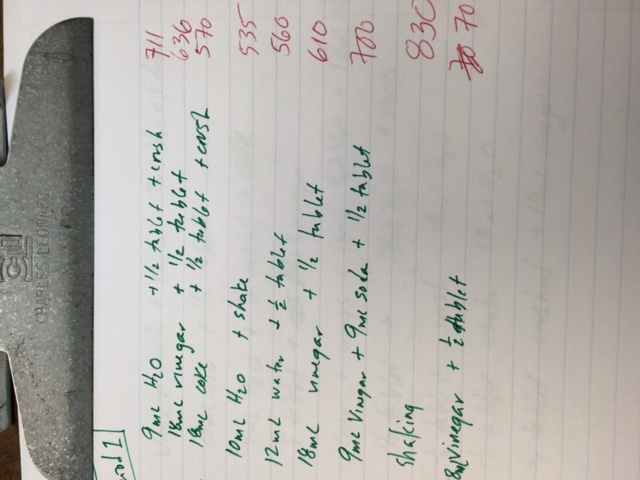 CHARLES LEONARD
9mL H2O + 1/2 tablet + crush 711
18mL vinegar + 1/2 tablet 636
18mL coke + 1/2 tablet + crush 570
10mL H2O + shake 535
12mL water + 1/2 tablet 560
18mL vinegar + 1/2 tablet 610
9mL Vingar + 9mL soda + 1/2 tablet 700
shaking 830
8mL vinegar + 1/2 tablet 70